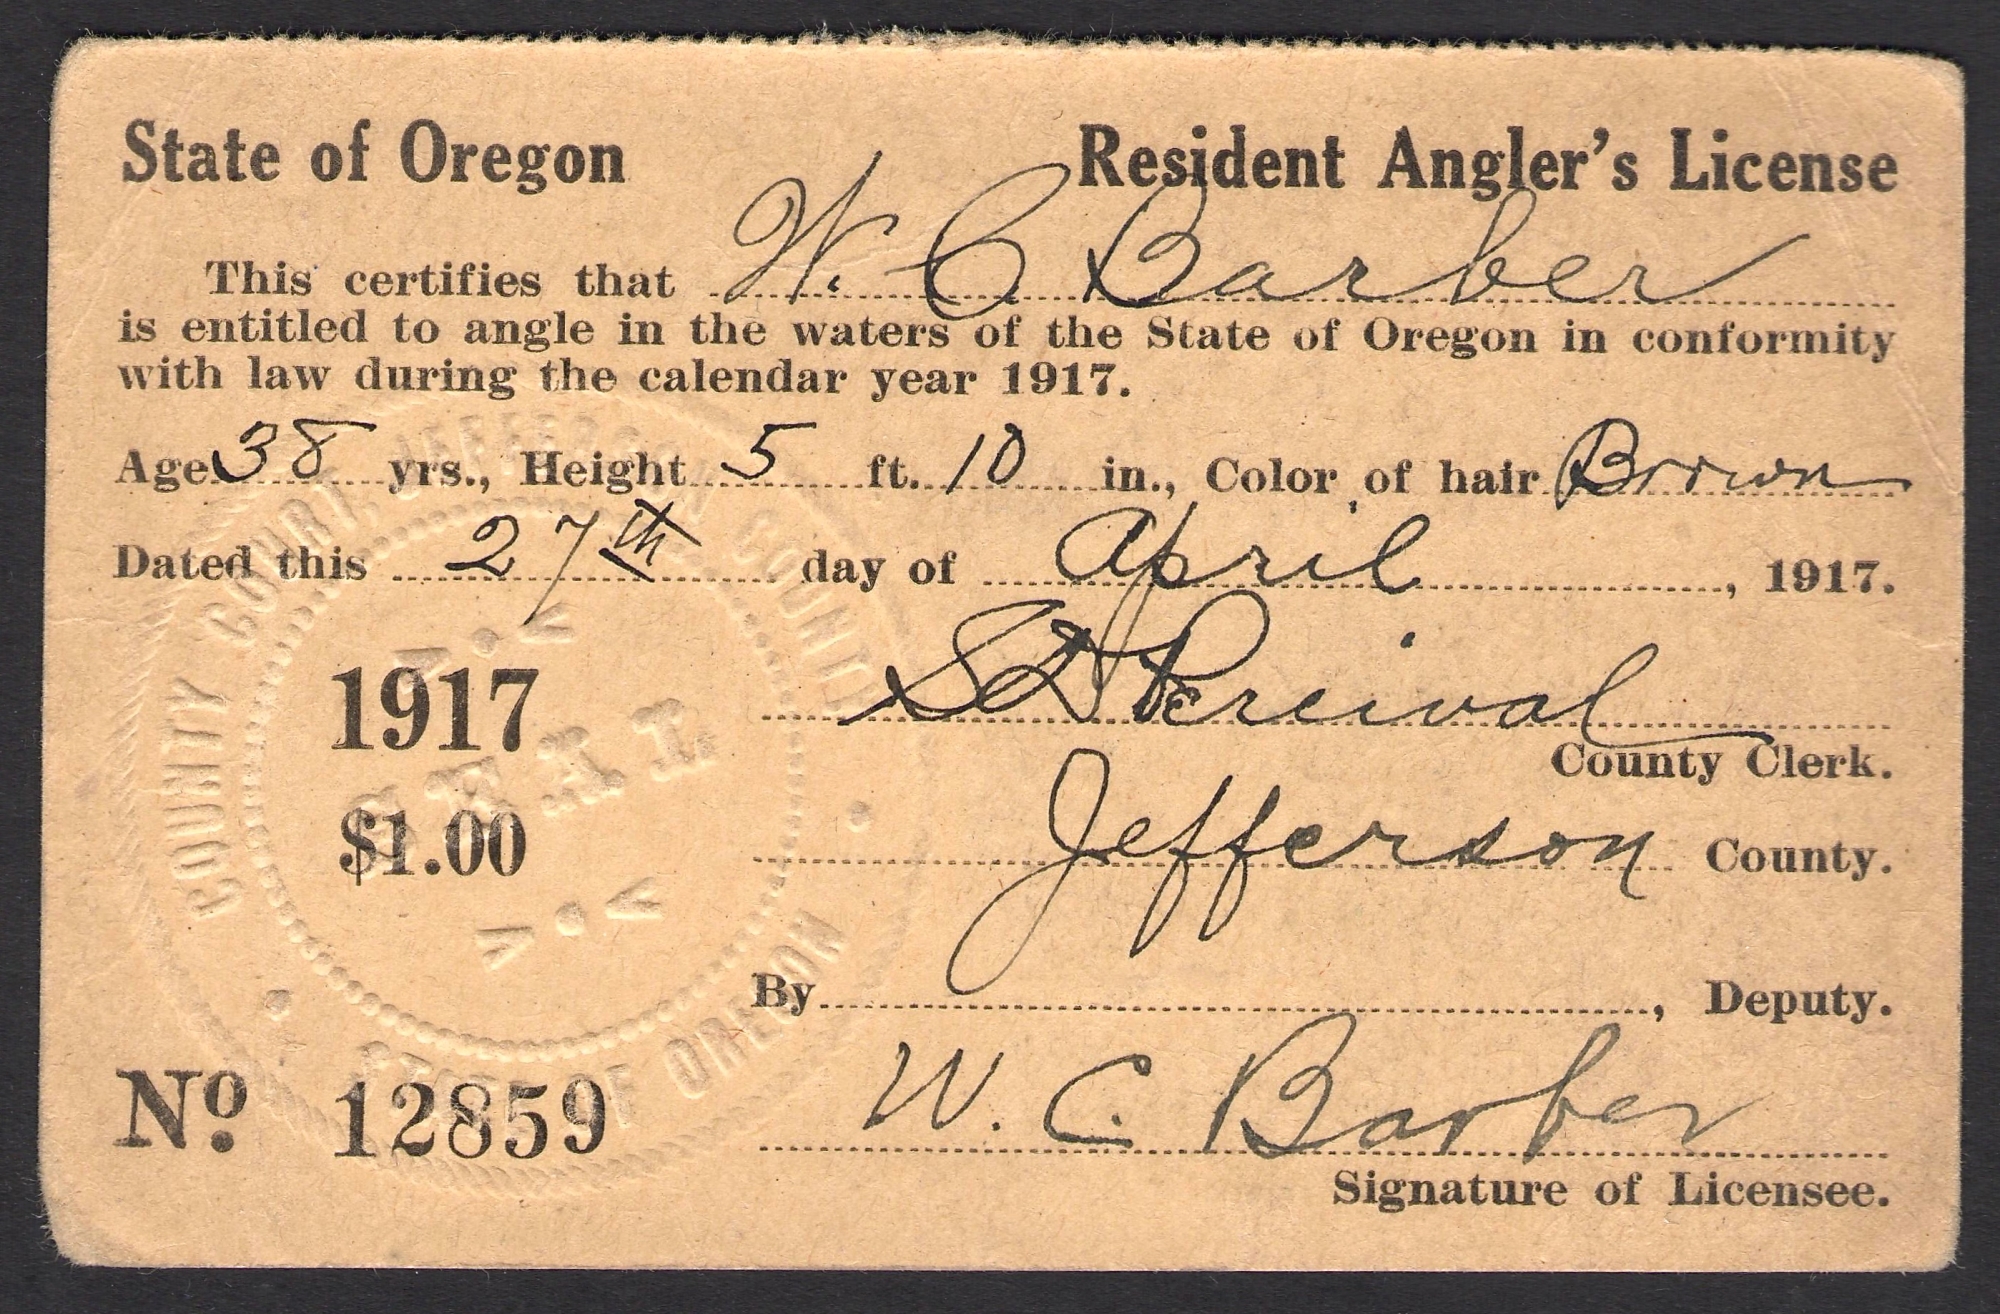 State of Oregon Resident Angler's License
This certifies that W. C Barber
is entitled to angle in the waters of the State of Oregon in conformity
with law during the calendar year 1917.
Age 38 yrs., Height 5 ft. 10 in., Color of hair Brown
Dated this 27th day of April, 1917.
Percival
County Clerk.
1917
$1.00
Jefferson County.
By , Deputy.
COUNTY COURT, JEFFERSON COUNTY
SEAL
STATE OF OREGON
No. 12859
W. C. Barber
Signature of Licensee.